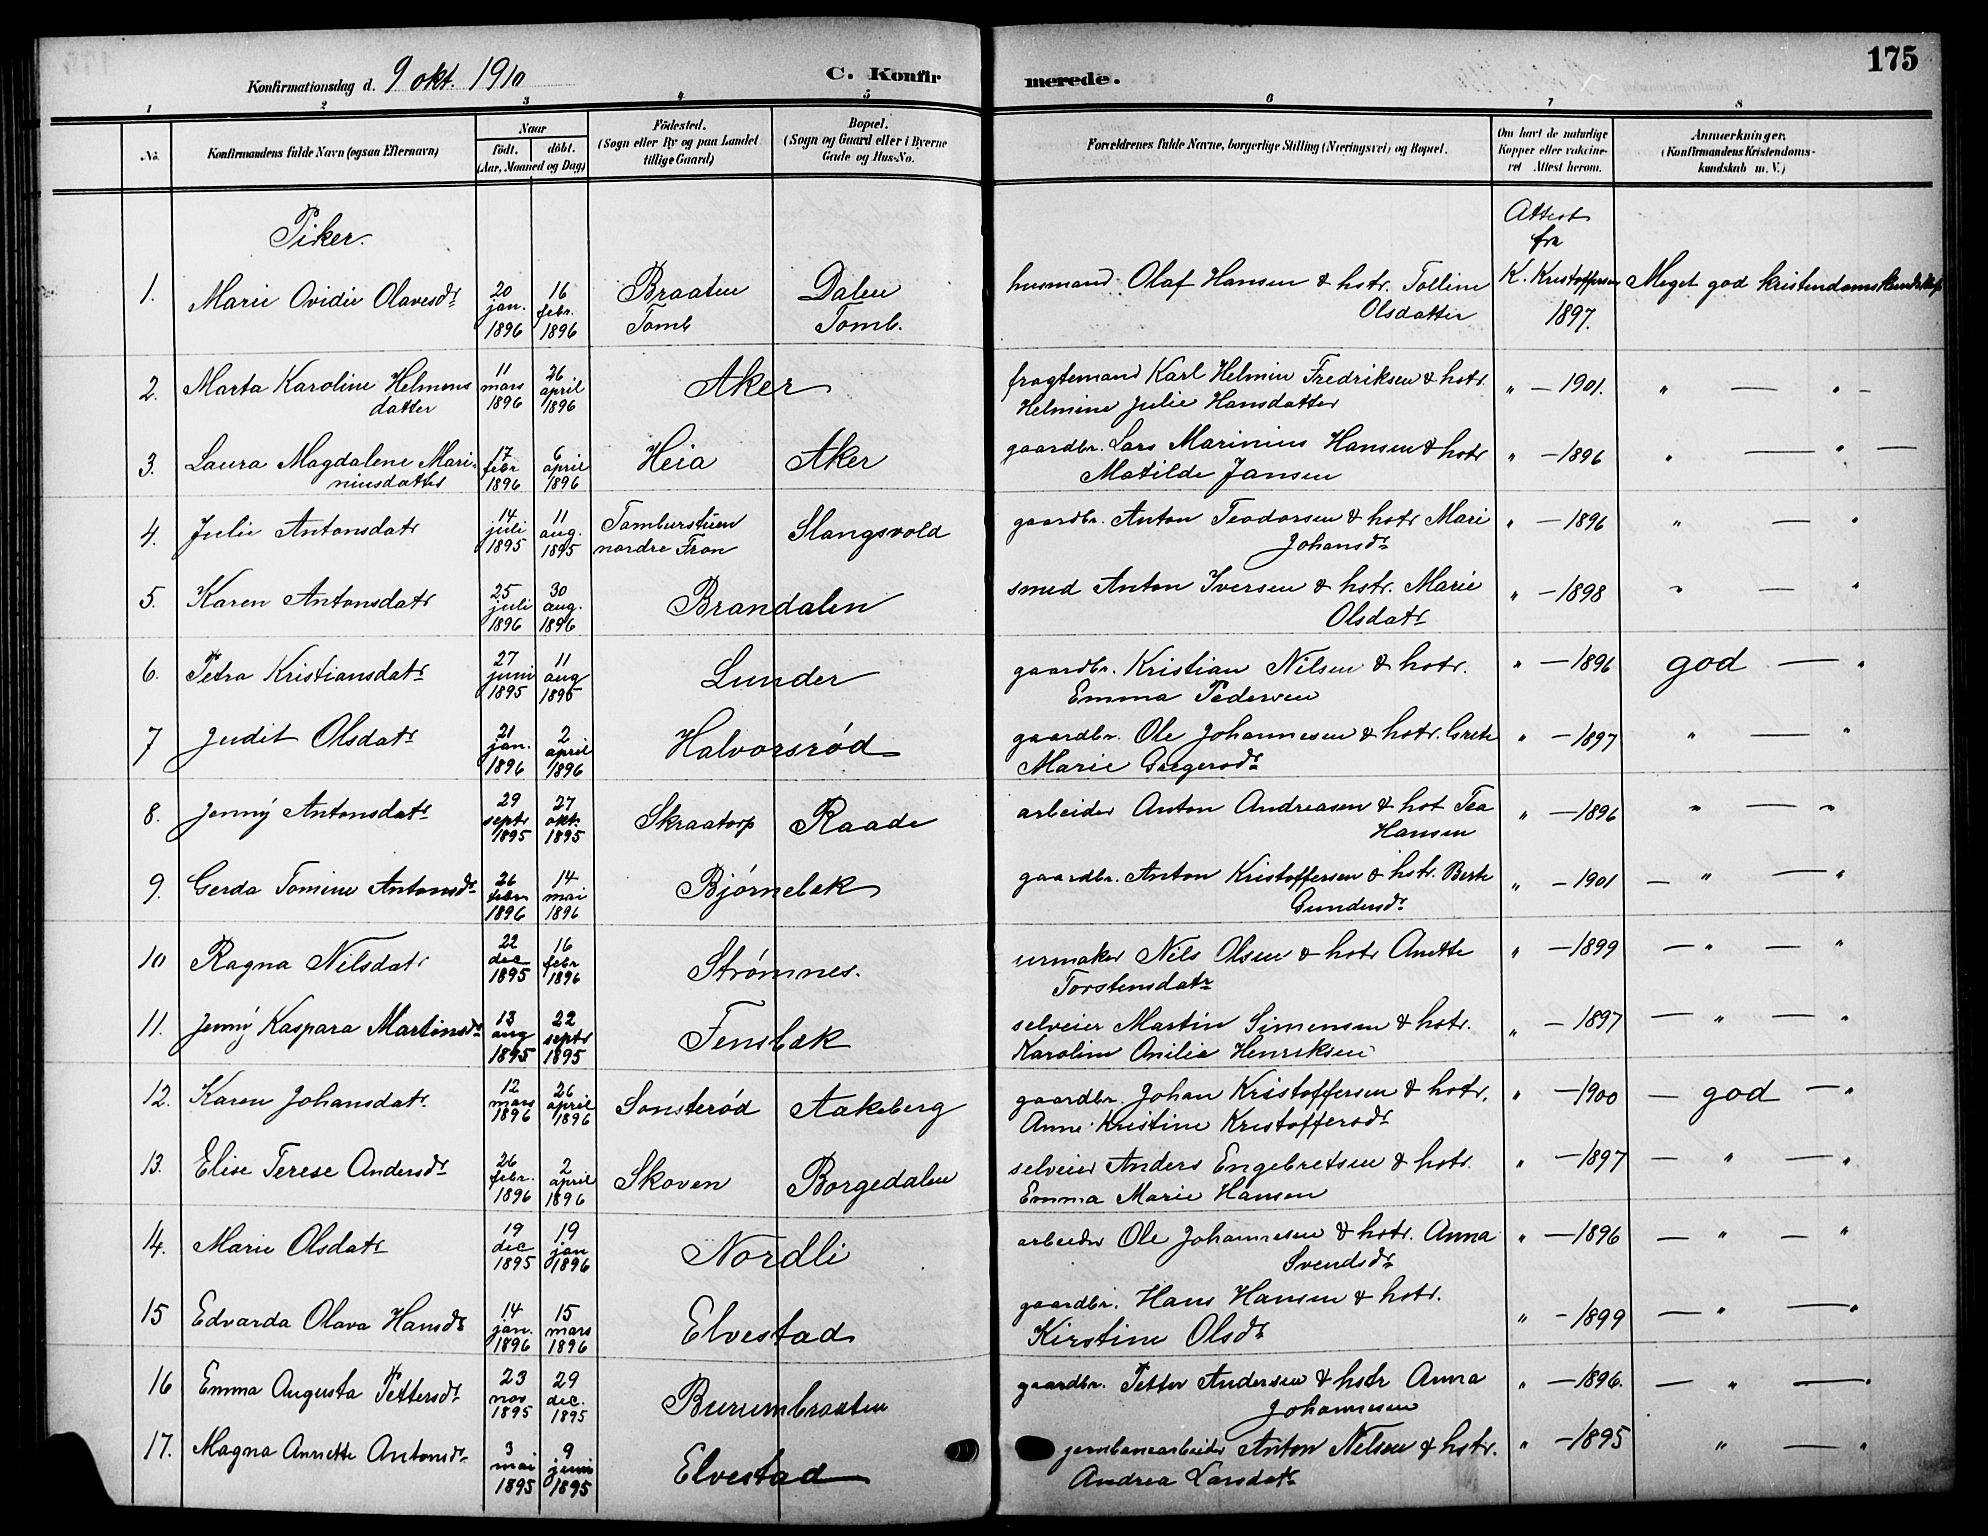 175
Konfirmationsdag d. 9 okt. 1910
C. Konfirmerede.
1 2 3 4 5 6 7 8
No.
Konfirmandens fulde Navn (ogsaa Efternavn)
Naar
födt. döbt.
(Aar, Maaned og Dag)
Födested.
(Sogn eller By og paa Landet
tillige Gaard)
Bopæl.
(Sogn og Gaard eller i Byerne
Gade og Hus-No.
Forældrenes fulde Navne, borgerlige Stilling (Næringsvei) og Bopæl.
Om havt de naturlige
Kopper eller vakcine-
ret Attest herom.
Anmærkninger.
(Konfirmandens Kristendoms-
kundskab m. V.)
Piker.
Attest
fra
K. Kristoffersen
1. Marie Ovidie Olavesdr 20 jan. 1896 16 febr. 1896 Braaten Tomb Dalen Tomb. husmand Olaf Hansen & hstr. Tolline Olsdatter 1897. Meget god kristendomskundskap
2. Marta Karoline Helmensdatter 11 mars 1896 26 april 1896 Aker fragtemand Karl Helmin Fredriksen & hstr. Helmine Julie Hansdatter " — 1901. " — " —
3. Laura Magdalene Mariniusdatter 17 febr 1896 6 april 1896 Heia Aker gaardbr. Lars Marinius Hansen & hstr Matilde Jansen " — 1896 " — " —
4. Julie Antonsdatr 14 juli 1895 11 aug. 1895 Tomburstuen nordre Fron Slangsvold gaardbr. Anton Teodorsen & hstr Mari Johansdr " — 1896 " — "
5. Karen Antonsdatr 25 juli 1896 30 aug. 1896 Brandalen smed Anton Iversen & hstr. Marie Olsdatr " — 1898 " — "
6. Petra Kristiansdatr 27 juni 1895 11 aug 1895 Lunder gaardbr. Kristian Nilsen & hstr. Emma Pedersen " — 1896 god — "
7 Judit Olsdatr 21 jan. 1896 2 april 1896 Halvorsrød gaardbr. Ole Johannesen & hstr. Grete Marie Gregersdr " — 1897 " — "
8. Jenny Antonsdatr 29 septr 1895 27 okt. 1895 Skraatorp Raade arbeider Anton Andreasen & hst Tea Hansen " — 1896 " — "
9. Gerda Tomine Antonsdr 26 febr 1896 14 mai 1896 Bjørnebæk gaardbr. Anton Kristoffersen & hstr. Berte Gundersdr " — 1901 — " — "
10 Ragna Nilsdatr 22 dec 1895 16 febr 1896 Strømnes. urmaker Nils Olsen & hstr Anette Torstensdatr " — 1899 — " — "
11. Jenny Kaspara Martinsdr 13 aug 1895 22 septr 1895 Fensbæk selveier Martin Simensen & hstr. Karoline Onilie Henriksen " — 1897 — " — "
12. Karen Johansdatr 12 mars 1896 26 april 1896 Sonsterød Aakeberg gaardbr. Johan Kristoffersen & hstr. Anne Kristine Kristoffersdr " — 1900 — god — "
13. Elise Terese Andersdr 26 febr. 1896 2 april 1896 Skoven Borgedalen selveier Anders Engebretsen & hstr. Emma Marie Hansen " — 1897 — " — "
14. Marie Olsdatr 19 dec 1895 19 jan 1896 Nordli arbeider Ole Johannesen & hstr. Anna Svendsdr " — 1896 — " — "
15 Edvarda Olava Hansdr 14 jan. 1896 15 mars 1896 Elvestad gaardbr. Hans Hansen & hstr. Kirstine Olsdr " — 1899 — " — "
16 Emma Augusta Pettersdr 23 nov 1895 29 dec. 1895 Burumbraaten gaardbr. Petter Andersen & hstr Anna Johannesen " — 1896. — " — "
17. Magna Annette Antonsdr 3 mai 1895 9 juni 1895 Elvestad jernbanearbeider Anton Nelsen & hstr. Andrea Larsdatr " — 1895 " — "